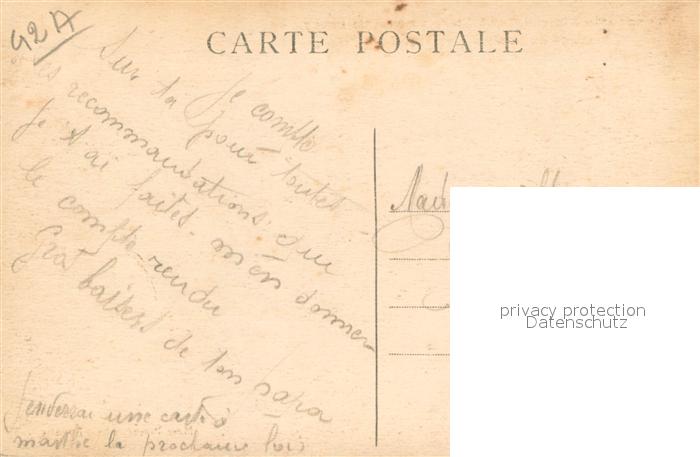 42A
CARTE POSTALE
Je compte
sur ta pour toutes
les recommandations que
Je t'ai faites. m'en donner
le compte rendu
Gros baisers de ton papa
J'enverrai une carte à
la prochaine fois
privacy protection
Datenschutz